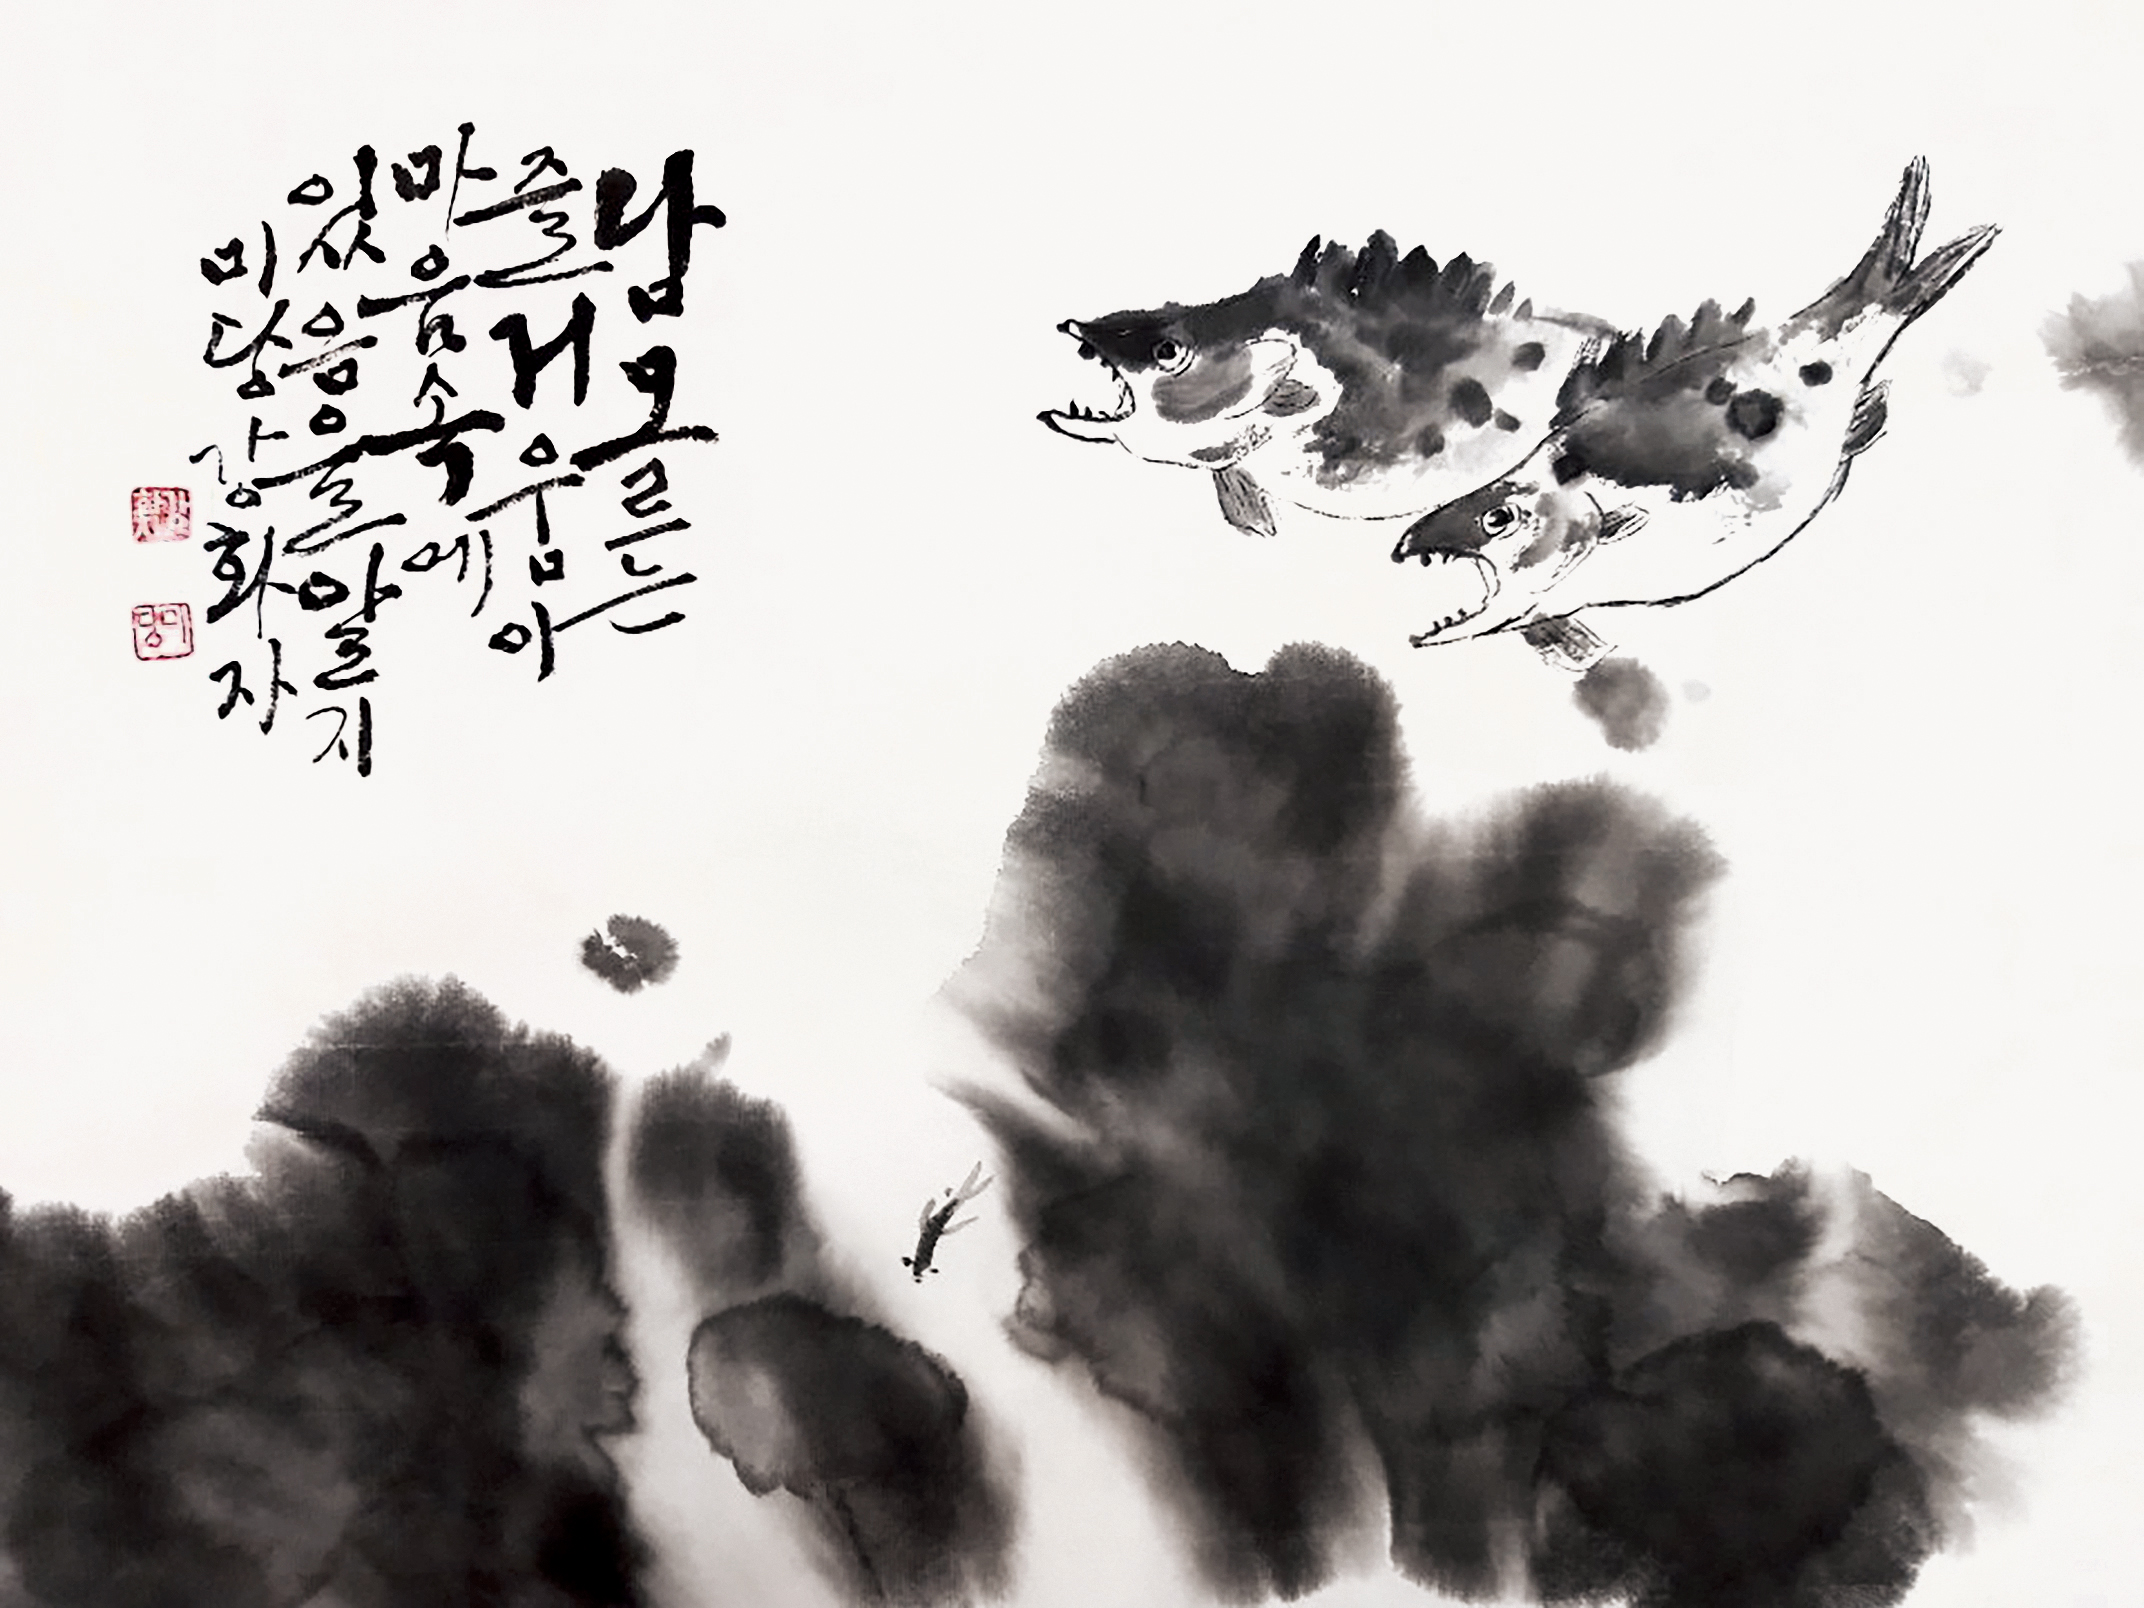 남모르는
즐거움이
마음속에
있음을알지
미당강화자